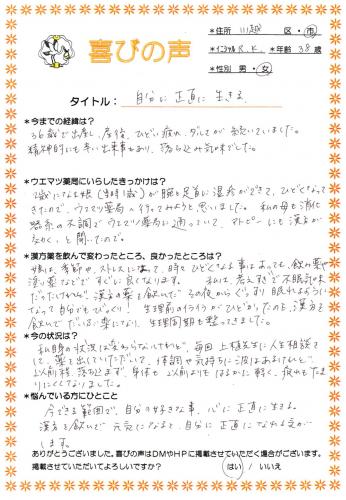 喜びの声
*住所 川越 区・市
*イニシャル R.K. *年齢 38歳
*性別 男・女
タイトル: 自分に正直に生きる
*今までの経緯は?
36歳で出産し、産後、ひどい疲れ、ダルさが続いていました。
精神的にも辛い出来事もあり、落ち込み気味でした。
*ウエマツ薬局にいらしたきっかけは?
2歳になる娘(当時1歳)が腕と足首に湿疹ができて、ひどくなって
きたので、ウエマツ薬局へ行ってみようと思いました。私の母も消化
器系の不調でウエマツ薬局に通っていて、アトピーにも漢方が
なおく、と聞いたので。
*漢方薬を飲んで変わったところ、良かったところは?
娘は、季節や、ストレスによって、時々ひどくなる事はあっても、飲み薬や
塗り薬などですぐに良くなります。私は、考えすぎで不眠気味
だったけれど、漢方の薬を飲いだその夜からぐっすり眠れるように
なって自分でもびっくり!生理前のイライラがひどかったのも、漢方を
飲んでだいぶ楽になり、生理周期も整ってきました。
*今の状況は?
私自身の状況は変わらないけれど、毎回上植先生に人生相談を
して、薬を出していただいて、体調や気持ちに波はあるけれど、
以前程、落ち込まず、身体も以前よりもはるかに軽く、疲れもたま
りにくくなりました。
*悩んでいる方にひとこと
今できる範囲で、自分の好きな事、心に正直に生きる。
漢方を飲んで元気になると、自分に正直になれる気が
します。
ありがとうございました。喜びの声はDMやHPに掲載させていただく場合がございます。
掲載させていただいてよろしいですか? はい / いいえ